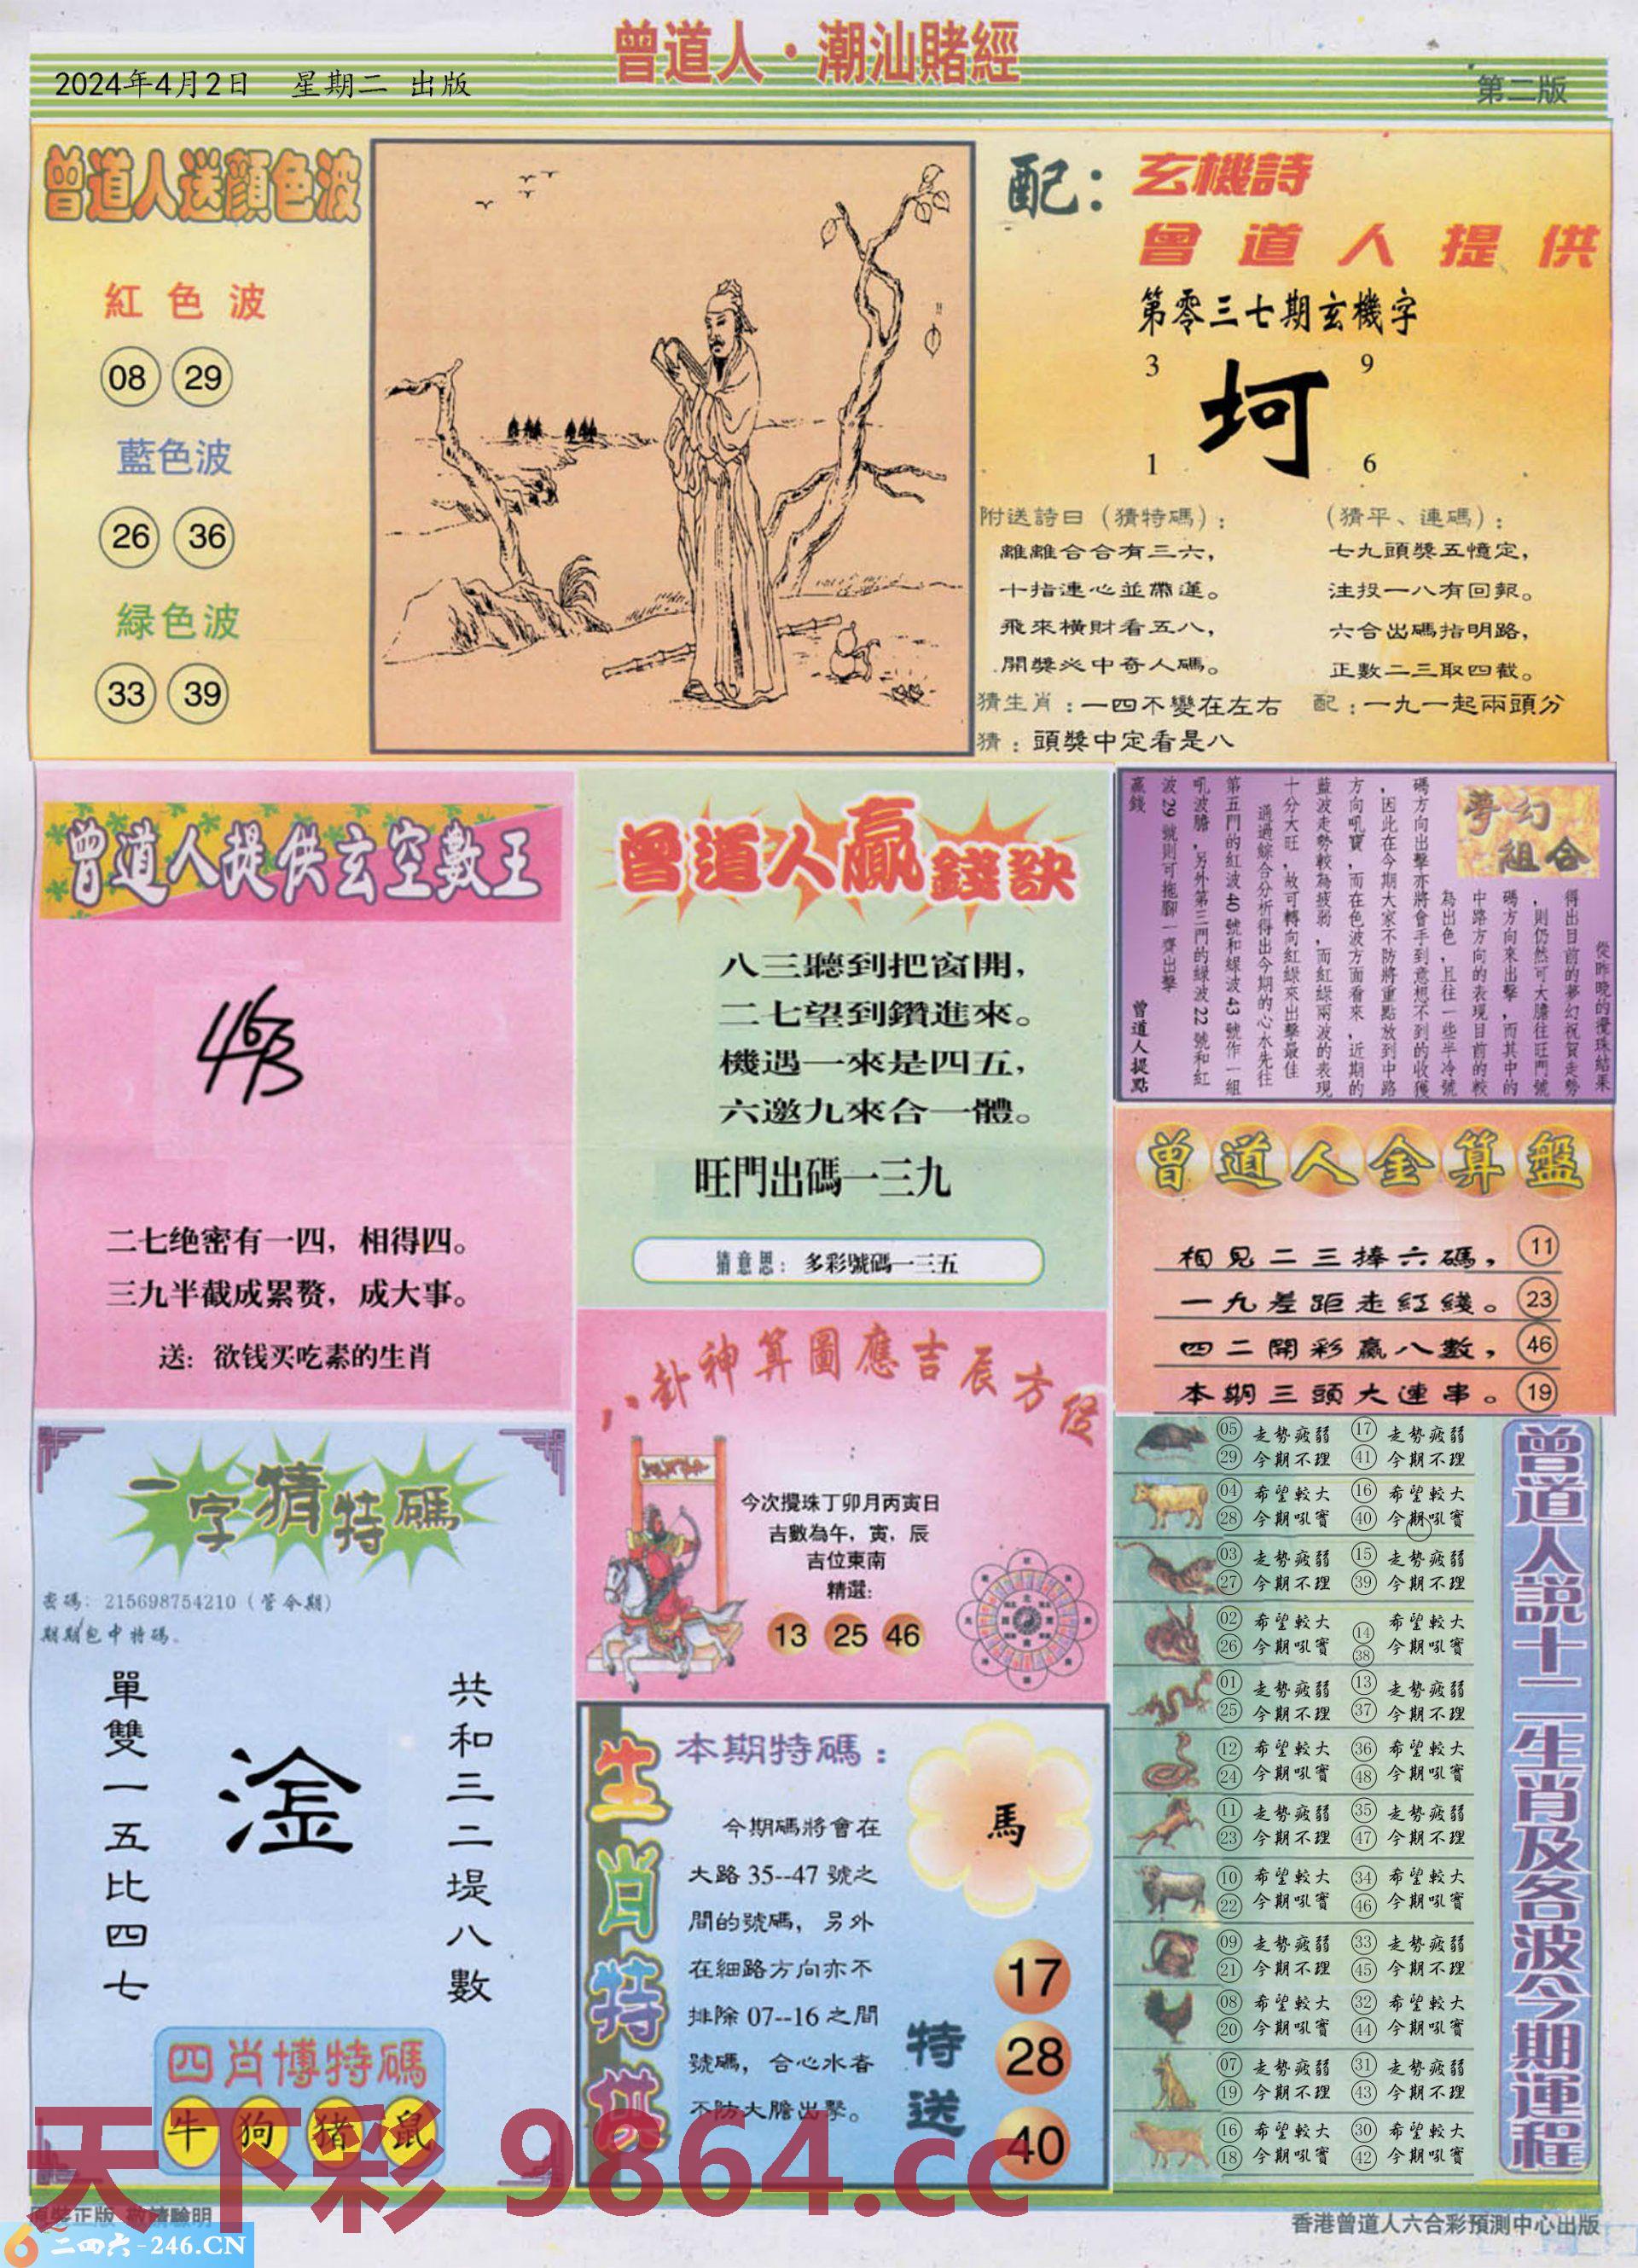 曾道人·潮汕賭經
2024年4月2日 星期二 出版
第二版
曾道人送顔色波
紅色波
08 29
藍色波
26 36
緑色波
33 39
配：玄機詩
曾道人提供
第零三七期玄機字
3 9
坷
1 6
附送詩日（猜特碼）：
離離合合有三六，
十指連心並帶蓮。
飛來橫財看五八，
開獎必中奇人碼。
（猜平、連碼）：
七九頭獎五憶定，
注投一八有回報。
六合出碼指明路，
正數二三取四截。
猜生肖：一四不變在左右
配：一九一起兩頭分
猜：頭獎中定看是八
曾道人提供玄空數王
二七绝密有一四，相得四。
三九半截成累赘，成大事。
送：欲钱买吃素的生肖
曾道人贏錢訣
八三聽到把窗開，
二七望到鑽進來。
機遇一來是四五，
六邀九來合一體。
旺門出碼一三九
猜意思：多彩號碼一三五
夢幻組合
從昨晚的攪珠結果
得出目前的夢幻祝賀走勢
，則仍然可大膽往旺門號
碼方向來出擊，而其中的
中路方向的表現目前的較
為出色，且往一些半冷號
碼方向出擊亦將會手到意想不到的收獲
，因此在今期大家不防將重點放到中路
方向吼寶，而在色波方面看來，近期的
藍波走勢較為疲弱，而紅綠兩波的表現
十分大旺，故可轉向紅綠來出擊最佳
通過綜合分析得出今期的心水先往
第五門的紅波40號和綠波43號作一組
吼波膽，另外第三門的綠波22號和紅
波29號則可拖腳一齊出擊
贏錢
曾道人提點
曾道人金算盤
相見二三捧六碼， 11
一九差距走紅綫。 23
四二開彩贏八數， 46
本期三頭大連串。 19
八卦神算圖應吉辰方位
今次攪珠丁卯月丙寅日
吉數為午，寅，辰
吉位東南
精選：
13 25 46
一字猜特碼
密碼：215698754210（管今期）
期期包中特碼。
單雙一五比四七
共和三二堤八數
四肖博特碼
牛 狗 猪 鼠
生肖特供
本期特碼：
今期碼將會在
大路35--47號之
間的號碼，另外
在細路方向亦不
排除07--16之間
號碼，合心水者
不防大膽出擊。
馬
特送
17
28
40
曾道人說十二生肖及各波今期運程
05 走勢疲弱 17 走勢疲弱
29 今期不理 41 今期不理
04 希望較大 16 希望較大
28 今期吼實 40 今期吼實
03 走勢疲弱 15 走勢疲弱
27 今期不理 39 今期不理
02 希望較大 14 希望較大
26 今期吼實 38 今期吼實
01 走勢疲弱 13 走勢疲弱
25 今期不理 37 今期不理
12 希望較大 36 希望較大
24 今期吼實 48 今期吼實
11 走勢疲弱 35 走勢疲弱
23 今期不理 47 今期不理
10 希望較大 34 希望較大
22 今期吼實 46 今期吼實
09 走勢疲弱 33 走勢疲弱
21 今期不理 45 今期不理
08 希望較大 32 希望較大
20 今期吼實 44 今期吼實
07 走勢疲弱 31 走勢疲弱
19 今期不理 43 今期不理
16 希望較大 30 希望較大
18 今期吼實 42 今期吼實
天下彩 9864.cc
原裝正版 敬請驗明
二四六-246.CN
香港曾道人六合彩預測中心出版